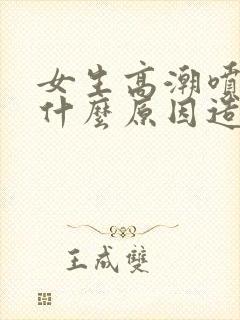 女生高潮噴
什麼原因造
王成雙